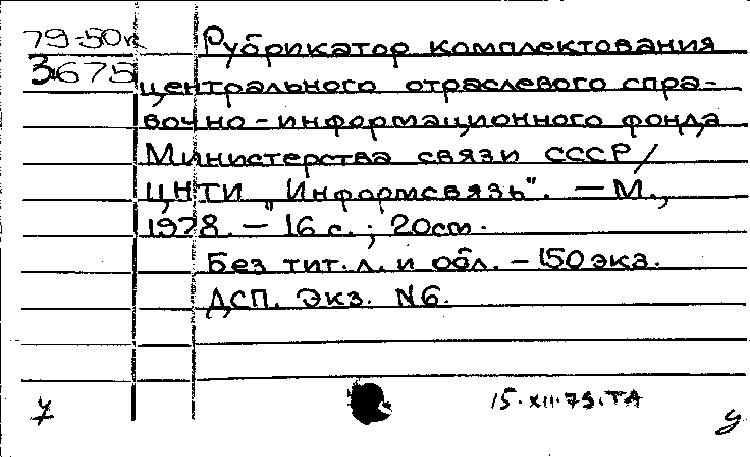 79-50к Рубрикатор комплектования
3675 центрального отраслевого спра-
вочно-информационного фонда
Министерства связи СССР/
ЦНТИ "Информсвязь". — М.,
1978. — 16 с. ; 20см.
Без тит. л. и обл. — 150 экз.
ДСП. Экз. N6.
15.XII.79.ТА
у